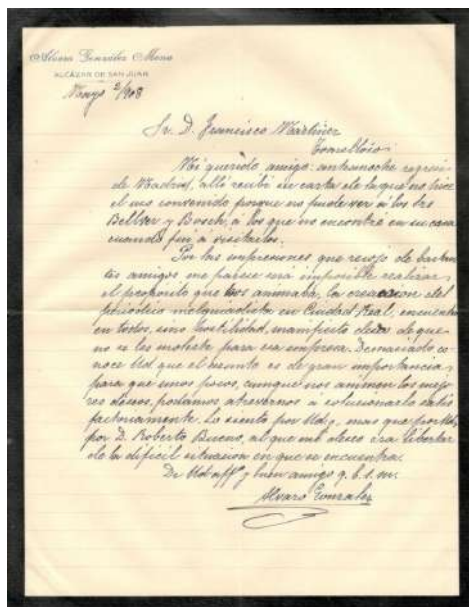 Alvaro González Mena
ALCÁZAR DE SAN JUAN
Mayo 2/908
Sr. D. Francisco Martínez
Tomelloso:
Mi querido amigo: antenoche regresé
de Madrid, allí recibí su carta de la que no hice
el uso convenido porque no pude ver a los Srs
Bellver y Bosch, a los que no encontré en su casa
cuando fuí á visitarlos.
Por las impresiones que recojo de bastan
tes amigos me parece será imposible realizar
el propósito que nos animaba, la creación del
periódico melquiadista en Ciudad Real, encuentro
en todos, sino hostilidad, manifiesto deseo de que
no se les moleste para esa empresa. Demasiado co-
noce Ud. que el asunto es de gran importancia
para que unos pocos, aunque nos animen los mejo
res deseos, podamos atrevernos a solucionarlo satis
factoriamente. Lo siento por Uds, mas que por
por D. Roberto Bueno, al que me deseo era libertar
de la difícil situación en que se encuentra.
De Ud aff y buen amigo q. b. s. m.
Alvaro Gonzalez